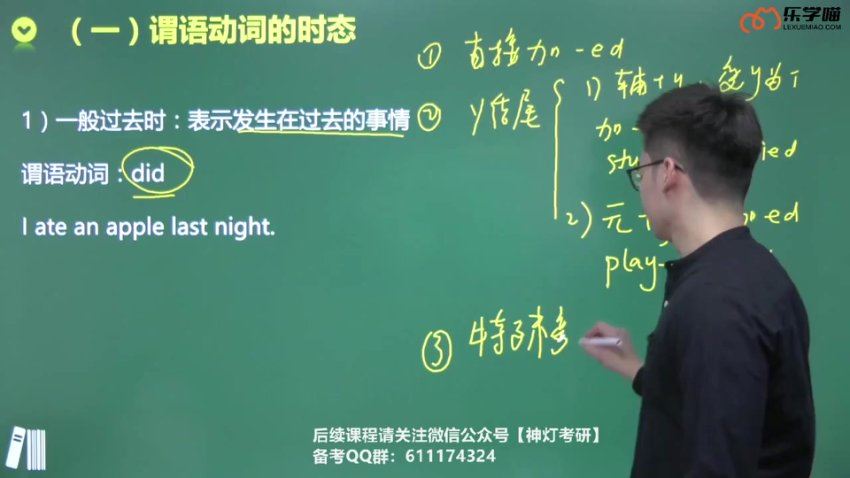 （一）谓语动词的时态
乐学喵
LEXUEMIAO.COM
① 直接加 -ed
1）一般过去时：表示发生在过去的事情
② y结尾
1) 辅+y，变y为i
加-
stu ied
谓语动词：did
2) 元+ -ed
play-
I ate an apple last night.
③ 特殊
后续课程请关注微信公众号【神灯考研】
备考QQ群：611174324